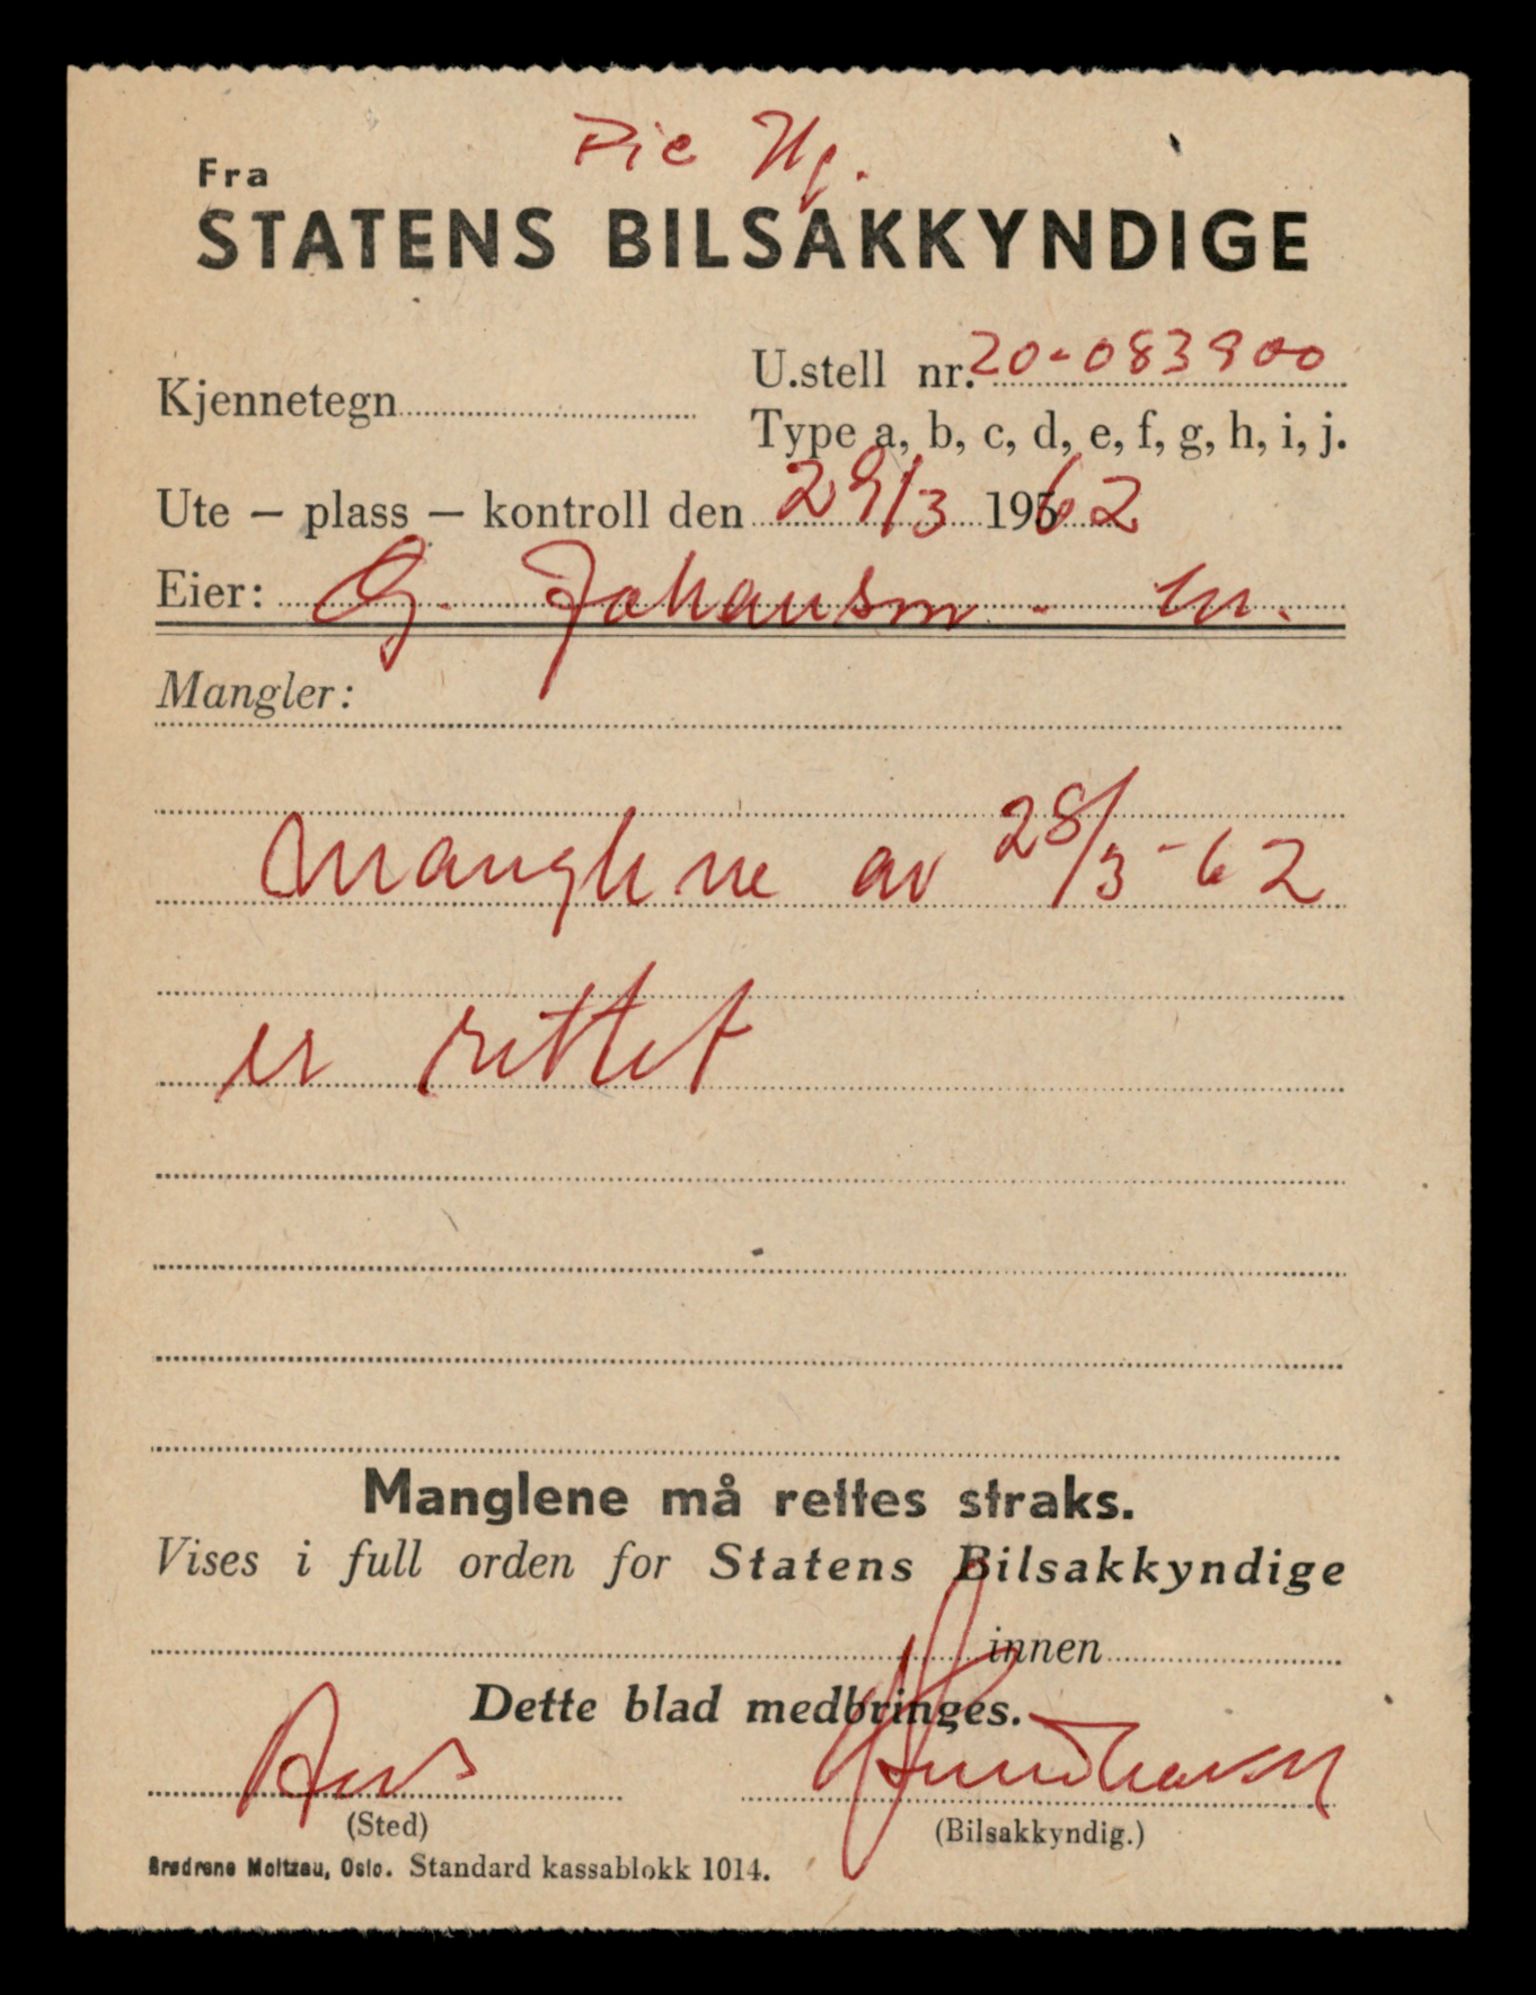 Fra
STATENS BILSAKKYNDIGE
U.stell nr. 20-083900
Kjennetegn
Type a, b, c, d, e, f, g, h, i, j.
Ute — plass — kontroll den 29/3 195 62
Eier: G. Johansen - m.
Mangler:
Manglene av 28/3-62
er rettet
Manglene må rettes straks.
Vises i full orden for Statens Bilsakkyndige
innen
Dette blad medbringes.
(Sted)
(Bilsakkyndig.)
Brødrene Moltzau, Oslo. Standard kassablokk 1014.